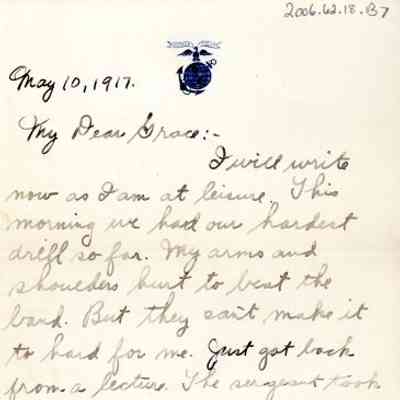 2006.62.18.B7
May 10, 1917.
My Dear Grace:-
I will write
now as I am at leisure. This
morning we had our hardest
drill so far. My arms and
shoulders hurt to beat the
band. But they can't make it
to hard for me. Just got back
from a lecture. The sergeant took